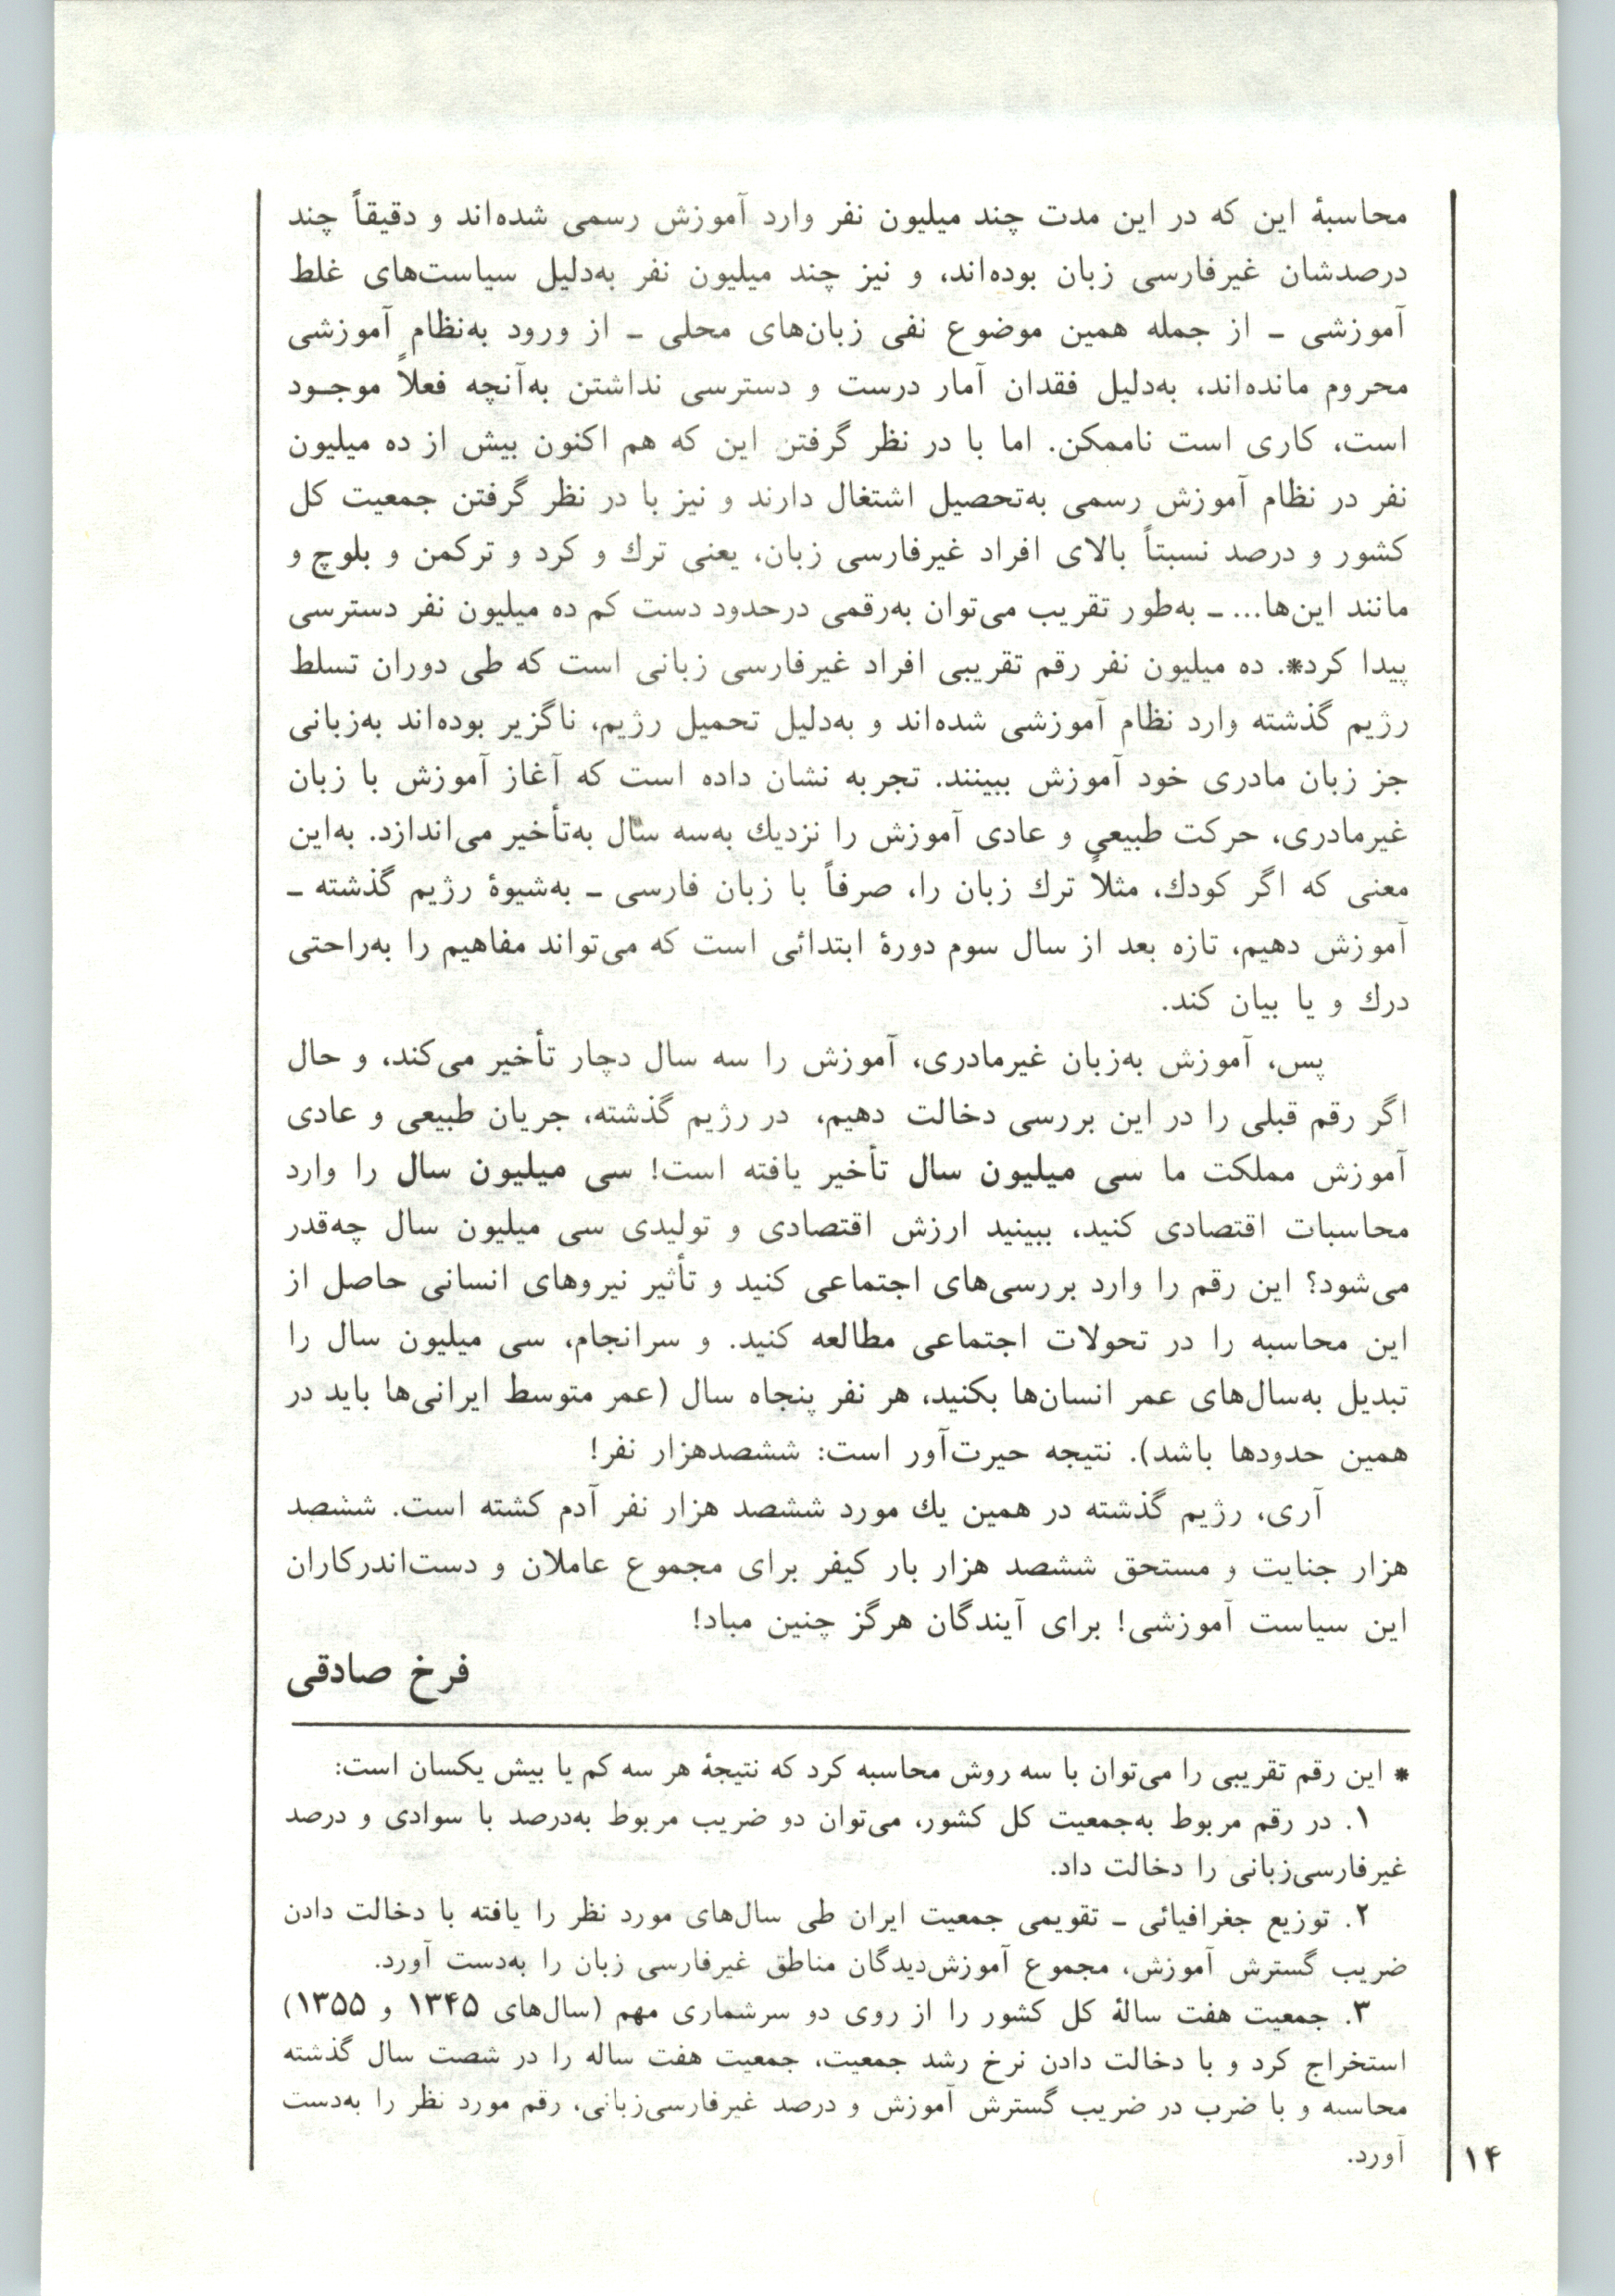 محاسبهٔ این که در این مدت چند میلیون نفر وارد آموزش رسمی شده‌اند و دقیقاً چند
درصدشان غیرفارسی زبان بوده‌اند، و نیز چند میلیون نفر به‌دلیل سیاست‌های غلط
آموزشی ـ از جمله همین موضوع نفی زبان‌های محلی ـ از ورود به‌نظام آموزشی
محروم مانده‌اند، به‌دلیل فقدان آمار درست و دسترسی نداشتن به‌آنچه فعلاً موجـود
است، کاری است ناممکن. اما با در نظر گرفتن این که هم اکنون بیش از ده میلیون
نفر در نظام آموزش رسمی به‌تحصیل اشتغال دارند و نیز با در نظر گرفتن جمعیت کل
کشور و درصد نسبتاً بالای افراد غیرفارسی زبان، یعنی ترك و کرد و ترکمن و بلوچ و
مانند این‌ها... ـ به‌طور تقریب می‌توان به‌رقمی درحدود دست کم ده میلیون نفر دسترسی
پیدا کرد*. ده میلیون نفر رقم تقریبی افراد غیرفارسی زبانی است که طی دوران تسلط
رژیم گذشته وارد نظام آموزشی شده‌اند و به‌دلیل تحمیل رژیم، ناگزیر بوده‌اند به‌زبانی
جز زبان مادری خود آموزش ببینند. تجربه نشان داده است که آغاز آموزش با زبان
غیرمادری، حرکت طبیعی و عادی آموزش را نزدیك به‌سه سال به‌تأخیر می‌اندازد. به‌این
معنی که اگر کودك، مثلاً ترك زبان را، صرفاً با زبان فارسی ـ به‌شیوهٔ رژیم گذشته ـ
آموزش دهیم، تازه بعد از سال سوم دورهٔ ابتدائی است که می‌تواند مفاهیم را به‌راحتی
درك و یا بیان کند.
پس، آموزش به‌زبان غیرمادری، آموزش را سه سال دچار تأخیر می‌کند، و حال
اگر رقم قبلی را در این بررسی دخالت دهیم، در رژیم گذشته، جریان طبیعی و عادی
آموزش مملکت ما سی میلیون سال تأخیر یافته است! سی میلیون سال را وارد
محاسبات اقتصادی کنید، ببینید ارزش اقتصادی و تولیدی سی میلیون سال چه‌قدر
می‌شود؟ این رقم را وارد بررسی‌های اجتماعی کنید و تأثیر نیروهای انسانی حاصل از
این محاسبه را در تحولات اجتماعی مطالعه کنید. و سرانجام، سی میلیون سال را
تبدیل به‌سال‌های عمر انسان‌ها بکنید، هر نفر پنجاه سال (عمر متوسط ایرانی‌ها باید در
همین حدودها باشد). نتیجه حیرت‌آور است: ششصدهزار نفر!
آری، رژیم گذشته در همین یك مورد ششصد هزار نفر آدم کشته است. ششصد
هزار جنایت و مستحق ششصد هزار بار کیفر برای مجموع عاملان و دست‌اندرکاران
این سیاست آموزشی! برای آیندگان هرگز چنین مباد!
فرخ صادقی
* این رقم تقریبی را می‌توان با سه روش محاسبه کرد که نتیجهٔ هر سه کم یا بیش یکسان است:
۱. در رقم مربوط به‌جمعیت کل کشور، می‌توان دو ضریب مربوط به‌درصد با سوادی و درصد
غیرفارسی‌زبانی را دخالت داد.
۲. توزیع جغرافیائی ـ تقویمی جمعیت ایران طی سال‌های مورد نظر را یافته با دخالت دادن
ضریب گسترش آموزش، مجموع آموزش‌دیدگان مناطق غیرفارسی زبان را به‌دست آورد.
۳. جمعیت هفت سالهٔ کل کشور را از روی دو سرشماری مهم (سال‌های ۱۳۴۵ و ۱۳۵۵)
استخراج کرد و با دخالت دادن نرخ رشد جمعیت، جمعیت هفت ساله را در شصت سال گذشته
محاسبه و با ضرب در ضریب گسترش آموزش و درصد غیرفارسی‌زبانی، رقم مورد نظر را به‌دست
آورد.
۱۴